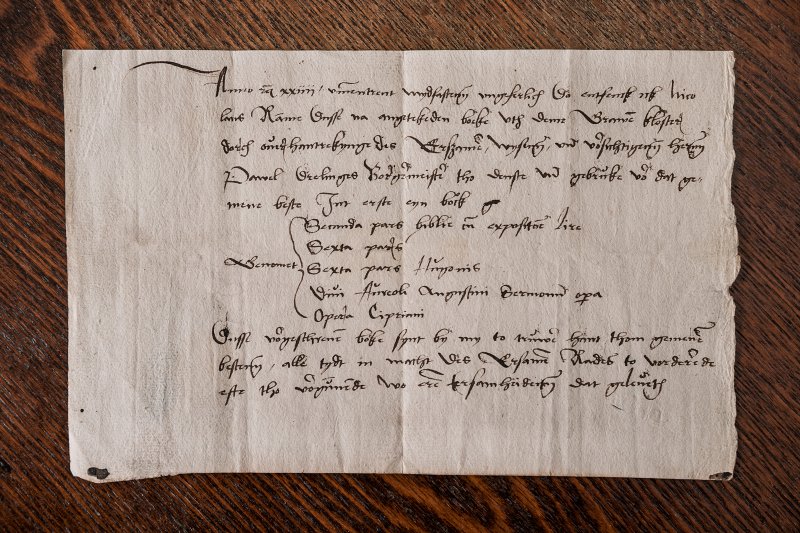 Anno xxiiii, ummentrent mydfasten ungeferlich Do entfenck ick Nico
laus Rame Dusse na angetekeden boke uth deme Grawen kloster
dorch overhantrekynge des Ersamen, wysen, und vorsichtigen heren
Pawel Drelinges Borgermeister tho denste und gebruke vor dat ge-
mene beste Int erste eyn boek
Secunda pars biblie cum expositione lire
Sexta pars
Genomet Sexta pars Hugonis
Divi Aureoli Augustini Sermonum opera
Opera Cipriani
Dusse vorgeschreven boke synt by my to truwer hant thom gemenen
besten, alle tydt in macht des Ersamen Rades to vorderende
efte tho vorgunnende wo ere Ersamheideken dat geleveth